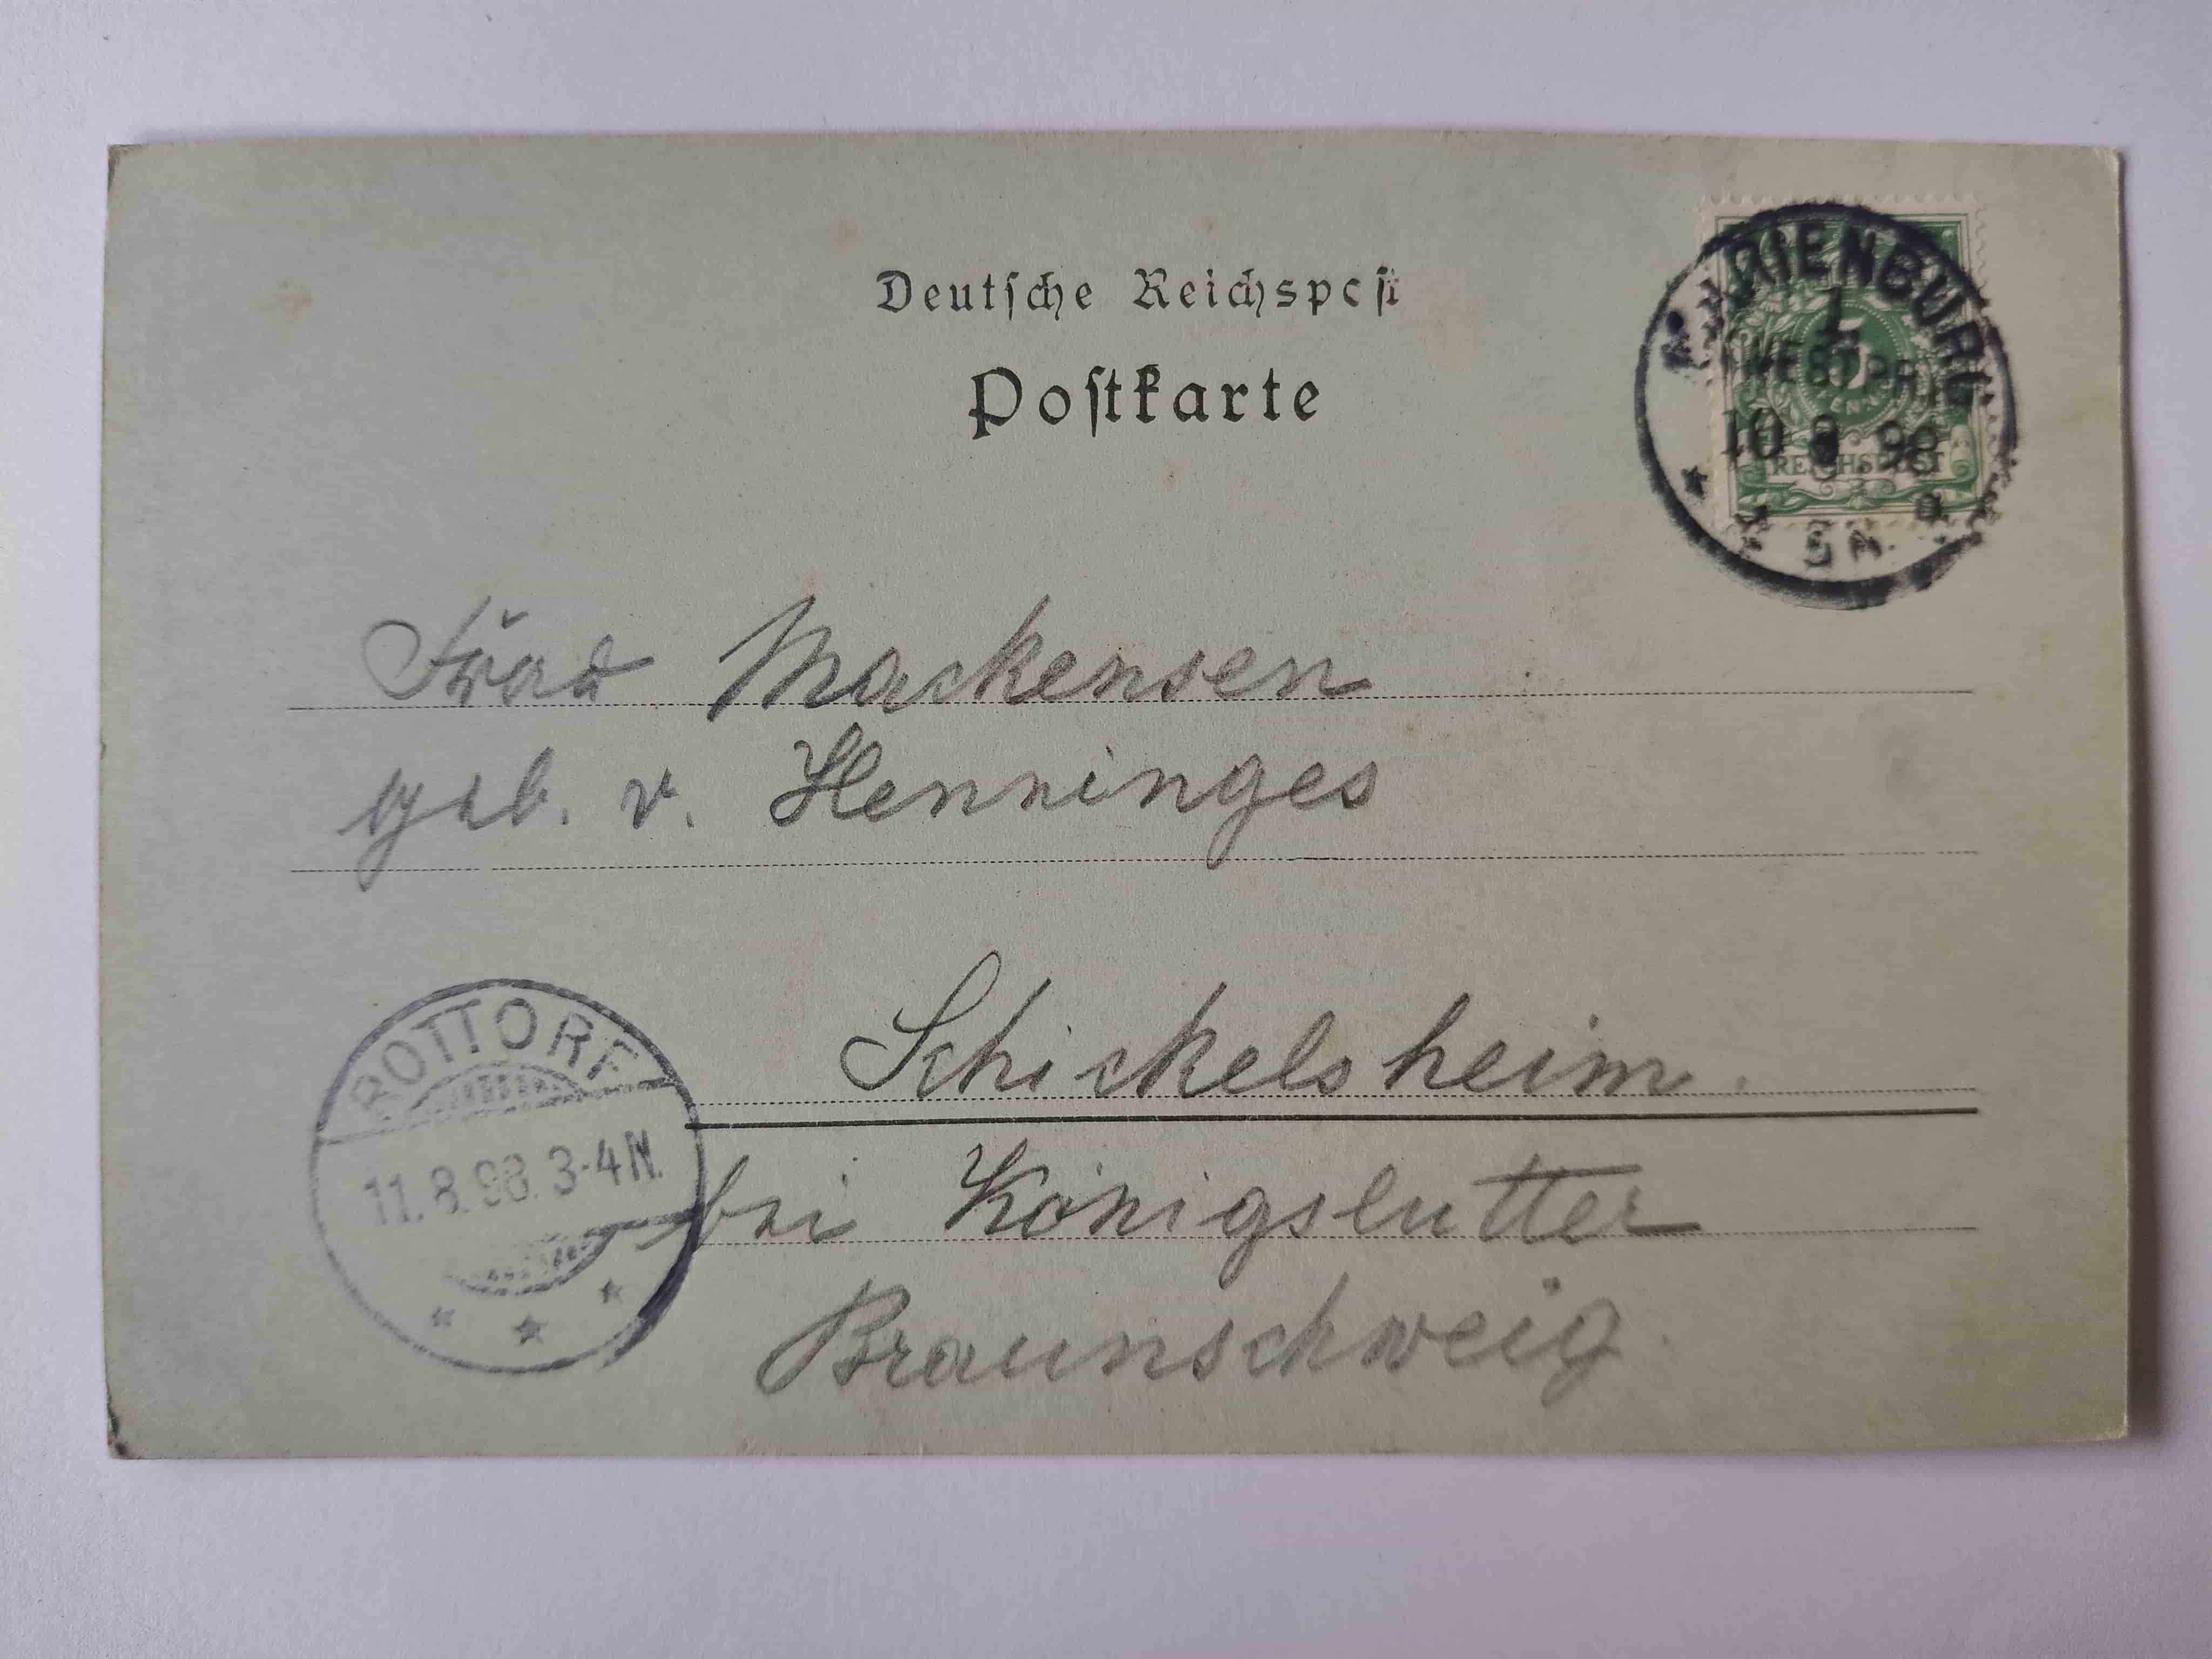 Deutsche Reichspost
Postkarte
MARIENBURG
1
(WESTPR.)
10 8 98
5
PFENNIG
REICHSPOST
Frau Mackensen
geb. v. Henninges
Schickelsheim.
bei Königslutter
Braunschweig.
ROTTORF
11.8.98. 3-4N.